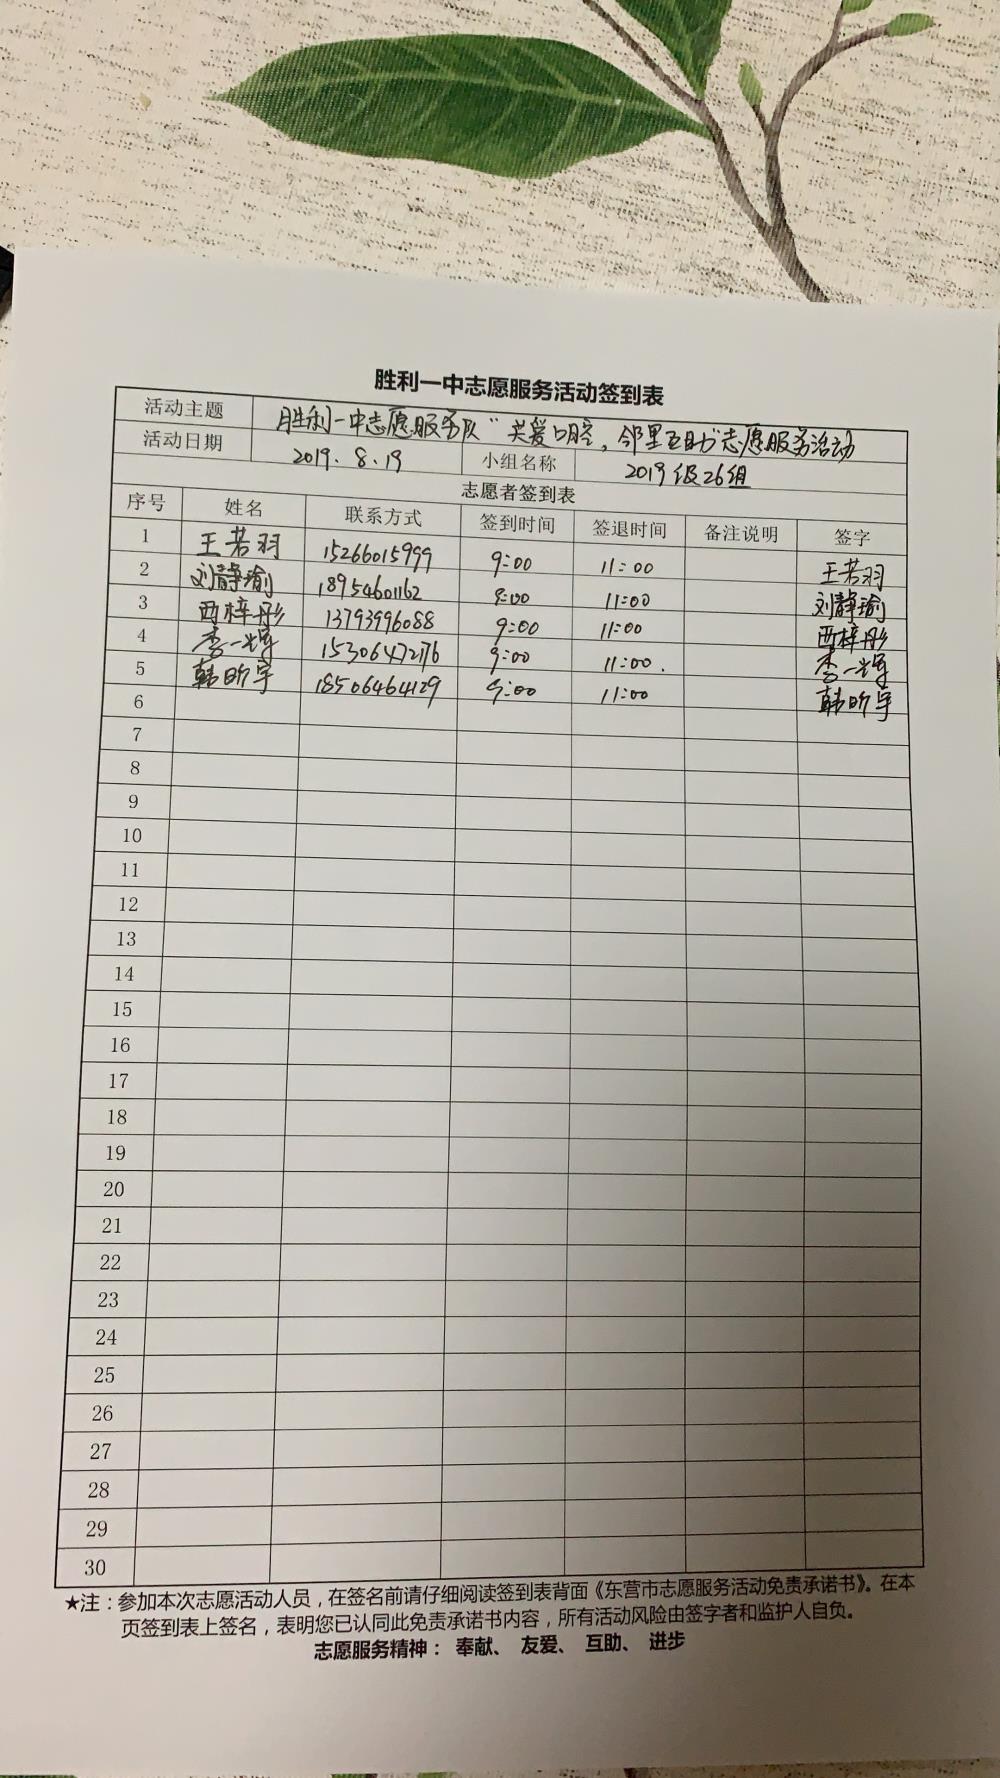 胜利一中志愿服务活动签到表
活动主题 胜利一中志愿服务队“关爱口腔,邻里互助”志愿服务活动
活动日期 2019.8.19 小组名称 2019级26组
志愿者签到表
序号 姓名 联系方式 签到时间 签退时间 备注说明 签字
1 王若羽 15266015999 9:00 11:00 王若羽
2 刘静瑜 18954601162 9:00 11:00 刘静瑜
3 西梓彤 13793996088 9:00 11:00 西梓彤
4 李一 15306472176 9:00 11:00. 李一
5 韩昕宇 18506464129 9:00 11:00 韩昕宇
6
7
8
9
10
11
12
13
14
15
16
17
18
19
20
21
22
23
24
25
26
27
28
29
30
★注:参加本次志愿活动人员,在签名前请仔细阅读签到表背面《东营市志愿服务活动免责承诺书》。在本
页签到表上签名,表明您已认同此免责承诺书内容,所有活动风险由签字者和监护人自负。
志愿服务精神: 奉献、 友爱、 互助、 进步